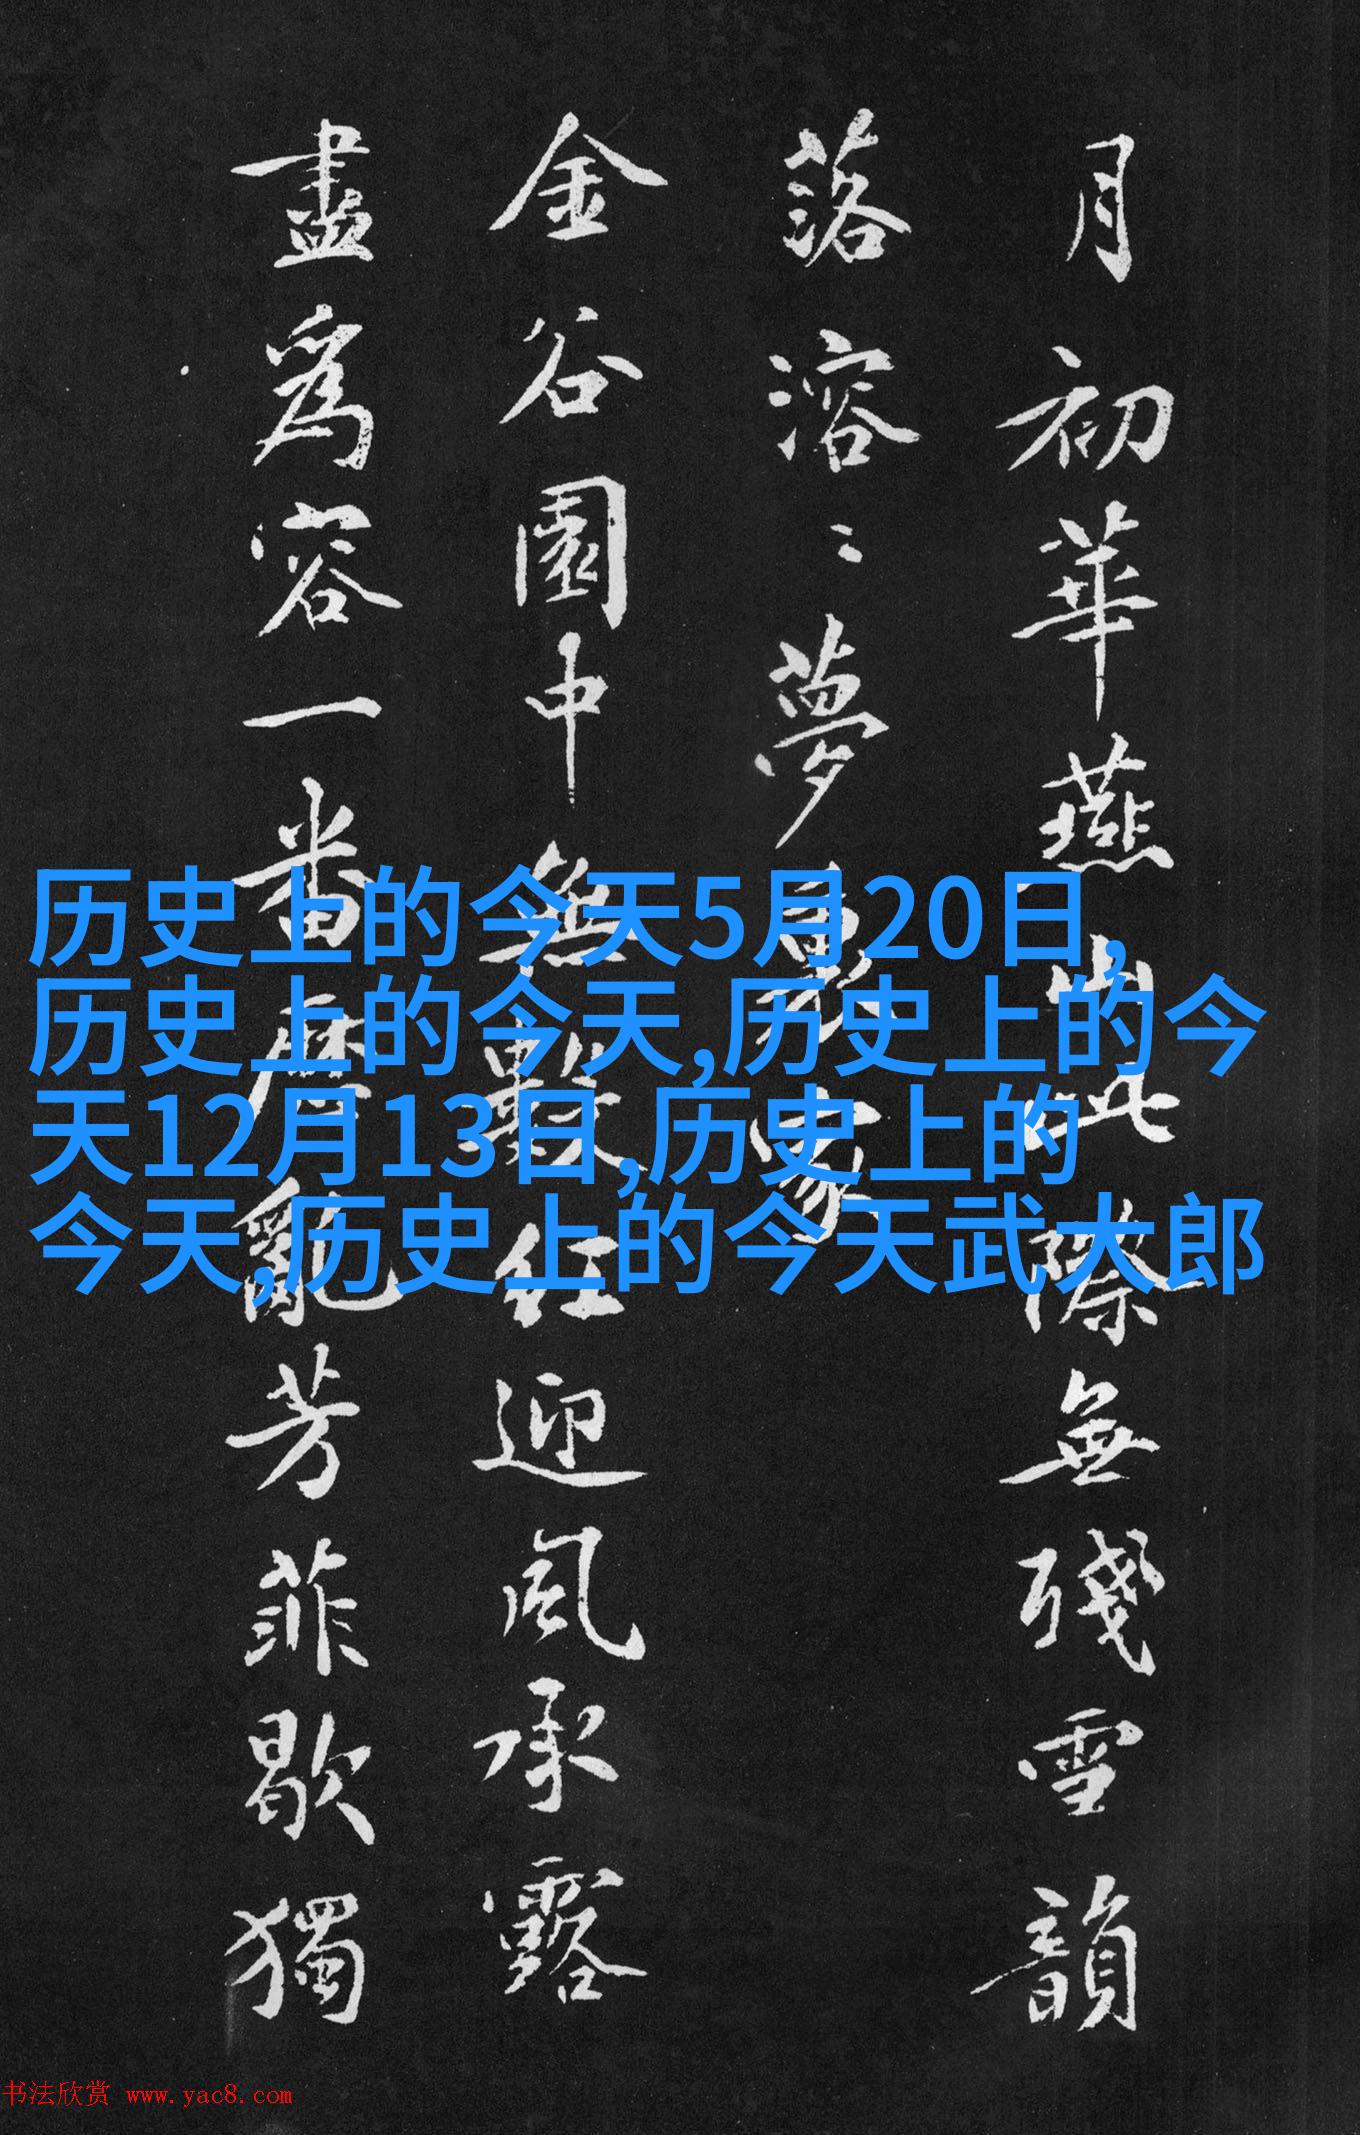 月初華燕山此際無殘雪韻
落溶〻夢影家
金谷園中無數红迎風承露
盡爲容一番磨亂芳菲歇獨
历史上的今天5月20日,
历史上的今天,历史上的今
天12月13日,历史上的
今天,历史上的今天武大郎
书法欣赏 www.yac8.com